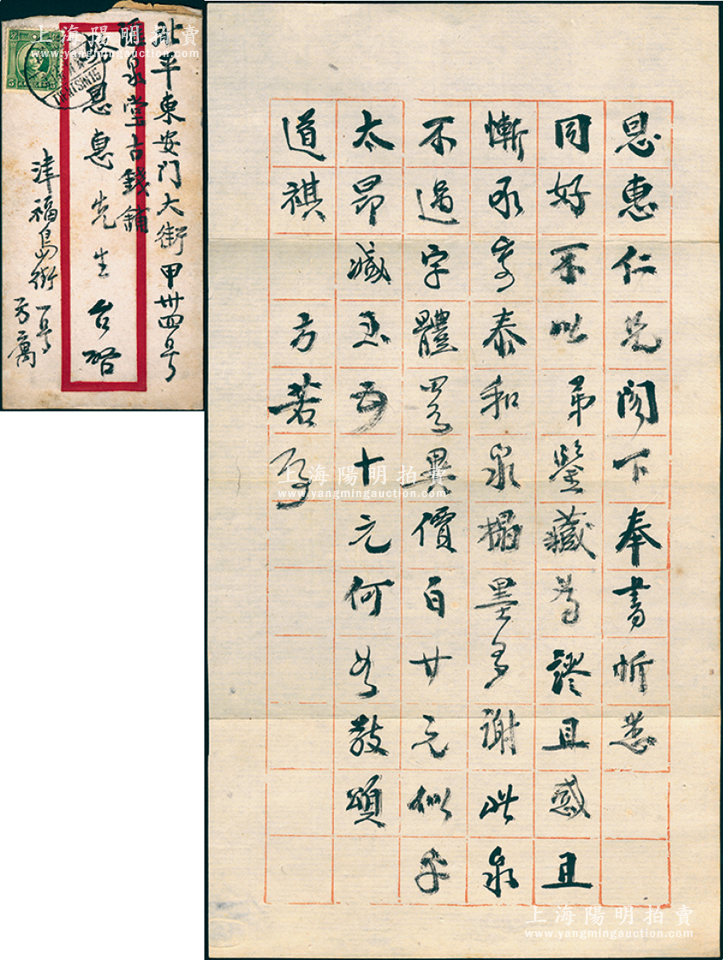 北平東安门大街甲卅四号
泉堂古錢舖
恩惠先生台啓
津福島街一号
方寓
恩惠仁兄阁下奉書忻悉
同好不以弟鑒藏為謬且感且
慚承寄泰和泉搨墨多謝此泉
不過字體畧異價百廿元似乎
太昂減至五十元何如敬頌
道祺 方若頓
TIENTSIN
上海陽明拍賣
www.yangmingauction.com
上海陽明拍賣
www.yangmingauction.com
上海陽明拍賣
www.yangmingauction.com